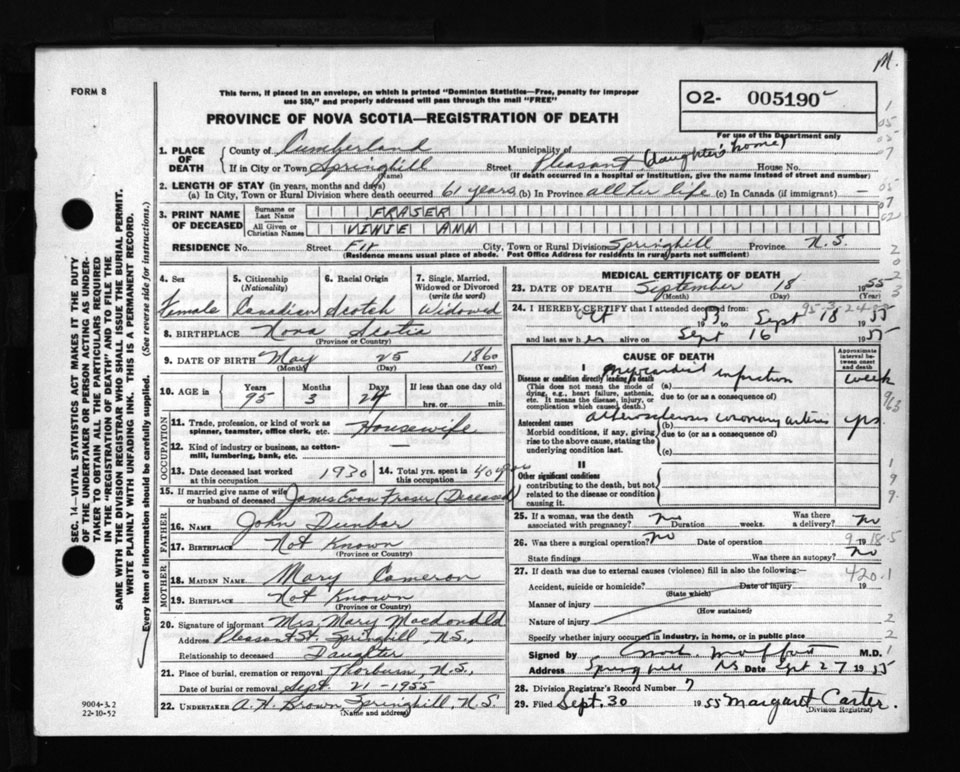 M.
FORM 8
This form, if placed in an envelope, on which is printed "Dominion Statistics—Free, penalty for improper
use $50," and properly addressed will pass through the mail "FREE"
02- 005190
For use of the Department only
PROVINCE OF NOVA SCOTIA—REGISTRATION OF DEATH
1. PLACE OF DEATH
County of Cumberland Municipality of
If in City or Town Springhill Street Pleasant (daughter's home) House No.
(Name) (If death occurred in a hospital or institution, give the name instead of street and number)
2. LENGTH OF STAY (in years, months and days)
(a) In City, Town or Rural Division where death occurred 61 years (b) In Province all her life (c) In Canada (if immigrant) —
3. PRINT NAME OF DECEASED
Surname or Last Name FRASER
All Given or Christian Names ANN
RESIDENCE No. Street Fir City, Town or Rural Division Springhill Province N.S.
(Residence means usual place of abode. Post Office Address for residents in rural parts not sufficient)
4. Sex Female
5. Citizenship (Nationality) Canadian
6. Racial Origin Scotch
7. Single, Married, Widowed or Divorced (write the word) Widowed
8. BIRTHPLACE Nova Scotia
(Province or Country)
9. DATE OF BIRTH May 25 1860
(Month) (Day) (Year)
10. AGE in Years 95 Months 3 Days 24 If less than one day old hrs. or min.
OCCUPATION
11. Trade, profession, or kind of work as spinner, teamster, office clerk, etc. Housewife
12. Kind of industry or business, as cotton-mill, lumbering, bank, etc. —
13. Date deceased last worked at this occupation 1930
14. Total yrs. spent in this occupation 40
15. If married give name of wife or husband of deceased James Evan Fraser (Deceased)
FATHER
16. NAME John Dunbar
17. BIRTHPLACE Not Known
(Province or Country)
MOTHER
18. MAIDEN NAME Mary Cameron
19. BIRTHPLACE Not Known
(Province or Country)
20. Signature of informant Mrs. Mary Macdonald
Address Pleasant St. Springhill, N.S.,
Relationship to deceased Daughter
21. Place of burial, cremation or removal Thorburn, N.S.
Date of burial or removal Sept. 21-1955
22. UNDERTAKER A. H. Brown Springhill, N.S.
(Name and address)
MEDICAL CERTIFICATE OF DEATH
23. DATE OF DEATH September 18 1955
(Month) (Day) (Year)
24. I HEREBY CERTIFY that I attended deceased
Oct 53 to Sept 18 1955
and last saw her alive on Sept 16 1955
95-3-24
CAUSE OF DEATH
Approximate interval between onset and death
I
Disease or condition directly leading to death
(This does not mean the mode of dying, e.g., heart failure, asthenia, etc. It means the disease, injury, or complication which caused death.)
(a) Myocardial infarction week
due to (or as a consequence of)
Antecedent causes
Morbid conditions, if any, giving rise to the above cause, stating the underlying condition last.
(b) coronary yrs
due to (or as a consequence of)
(c)
II
Other significant conditions
contributing to the death, but not related to the disease or condition causing it.
25. If a woman, was the death associated with pregnancy? No Duration weeks. Was there a delivery? No
26. Was there a surgical operation? No Date of operation 19
State findings Was there an autopsy? No
27. If death was due to external causes (violence) fill in also the following:—
420.1
Accident, suicide or homicide? Date of injury 19
(State which)
Manner of injury
(How sustained)
Nature of injury
Specify whether injury occurred in industry, in home, or in public place
Signed by M.D.
Address Springhill NS Date Sept 27 1955
28. Division Registrar's Record Number 7
29. Filed Sept. 30 1955 Margaret Carter
(Division Registrar)
SEC. 14—VITAL STATISTICS ACT MAKES IT THE DUTY
OF THE UNDERTAKER OR PERSON ACTING AS UNDER-
TAKER TO OBTAIN ALL THE PARTICULARS REQUIRED
IN THE "REGISTRATION OF DEATH" AND TO FILE THE
SAME WITH THE DIVISION REGISTRAR WHO SHALL ISSUE THE BURIAL PERMIT.
WRITE PLAINLY WITH UNFADING INK. THIS IS A PERMANENT RECORD.
Every item of information should be carefully supplied. (See reverse side for instructions.)
9004-3.2
22-10-52